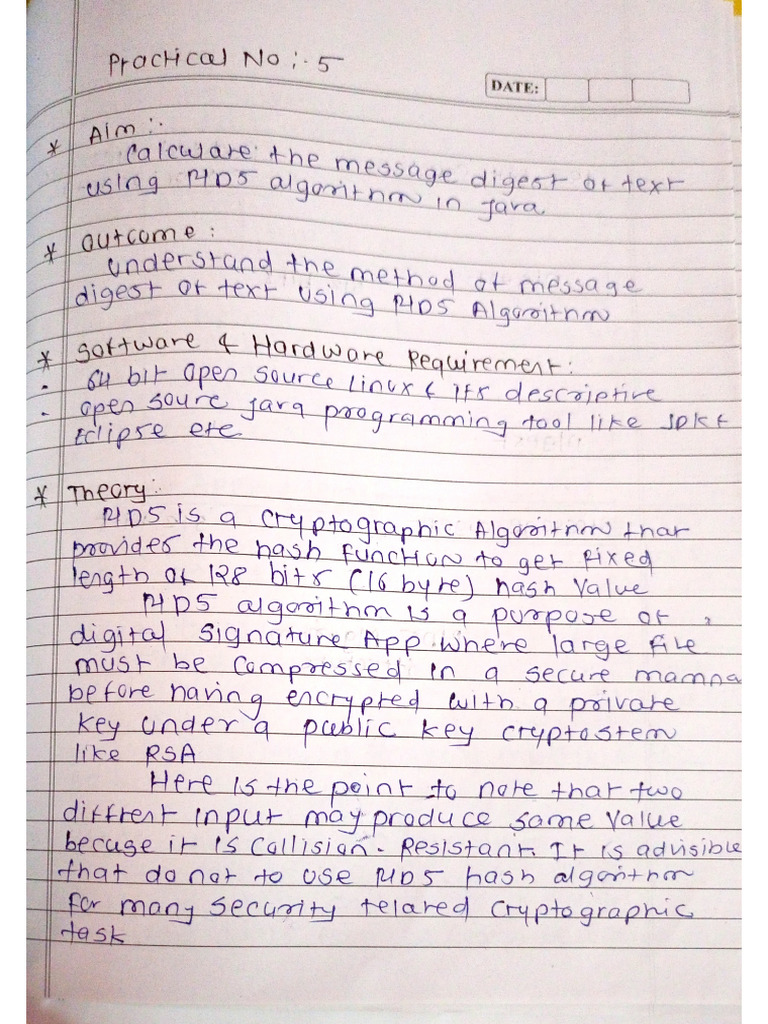 Practical No :- 5
DATE:
* Aim :-
Calculate the message digest of text
using MD5 algorithm in java
* Outcome :
Understand the method of message
digest of text using MD5 Algorithm
* Software & Hardware Requirement :
- 64 bit open source linux & its descriptive
- open soure java programming tool like JDK &
Eclipse etc
* Theory :-
MD5 is a cryptographic Algorithm that
provides the hash function to get fixed
length of 128 bits (16 byte) hash value
MD5 algorithm is a purpose of
digital signature App where large file
must be compressed in a secure manna
before having encrypted with a private
key under a public key cryptostem
like RSA
Here is the point to note that two
diffrent input may produce same value
becuse it is collision - Resistant. It is advisible
that do not to use MD5 hash algorithm
for many security related cryptographic
task